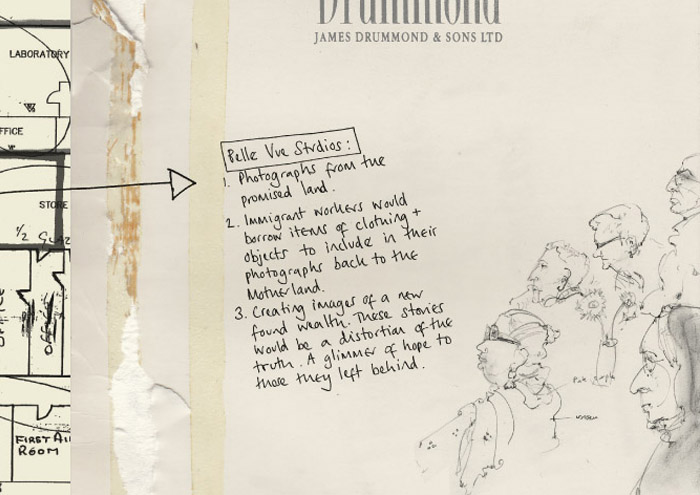 Drummond
JAMES DRUMMOND & SONS LTD
LABORATORY
OFFICE
STORE
1/2 GLAZ
OFFICE
FIRST AID
ROOM
Belle Vue Studios :
1. Photographs from the
promised land.
2. Immigrant workers would
borrow items of clothing +
objects to include in their
photographs back to the
Motherland.
3. Creating images of a new
found wealth. These stories
would be a distortion of the
truth. A glimmer of hope to
those they left behind.